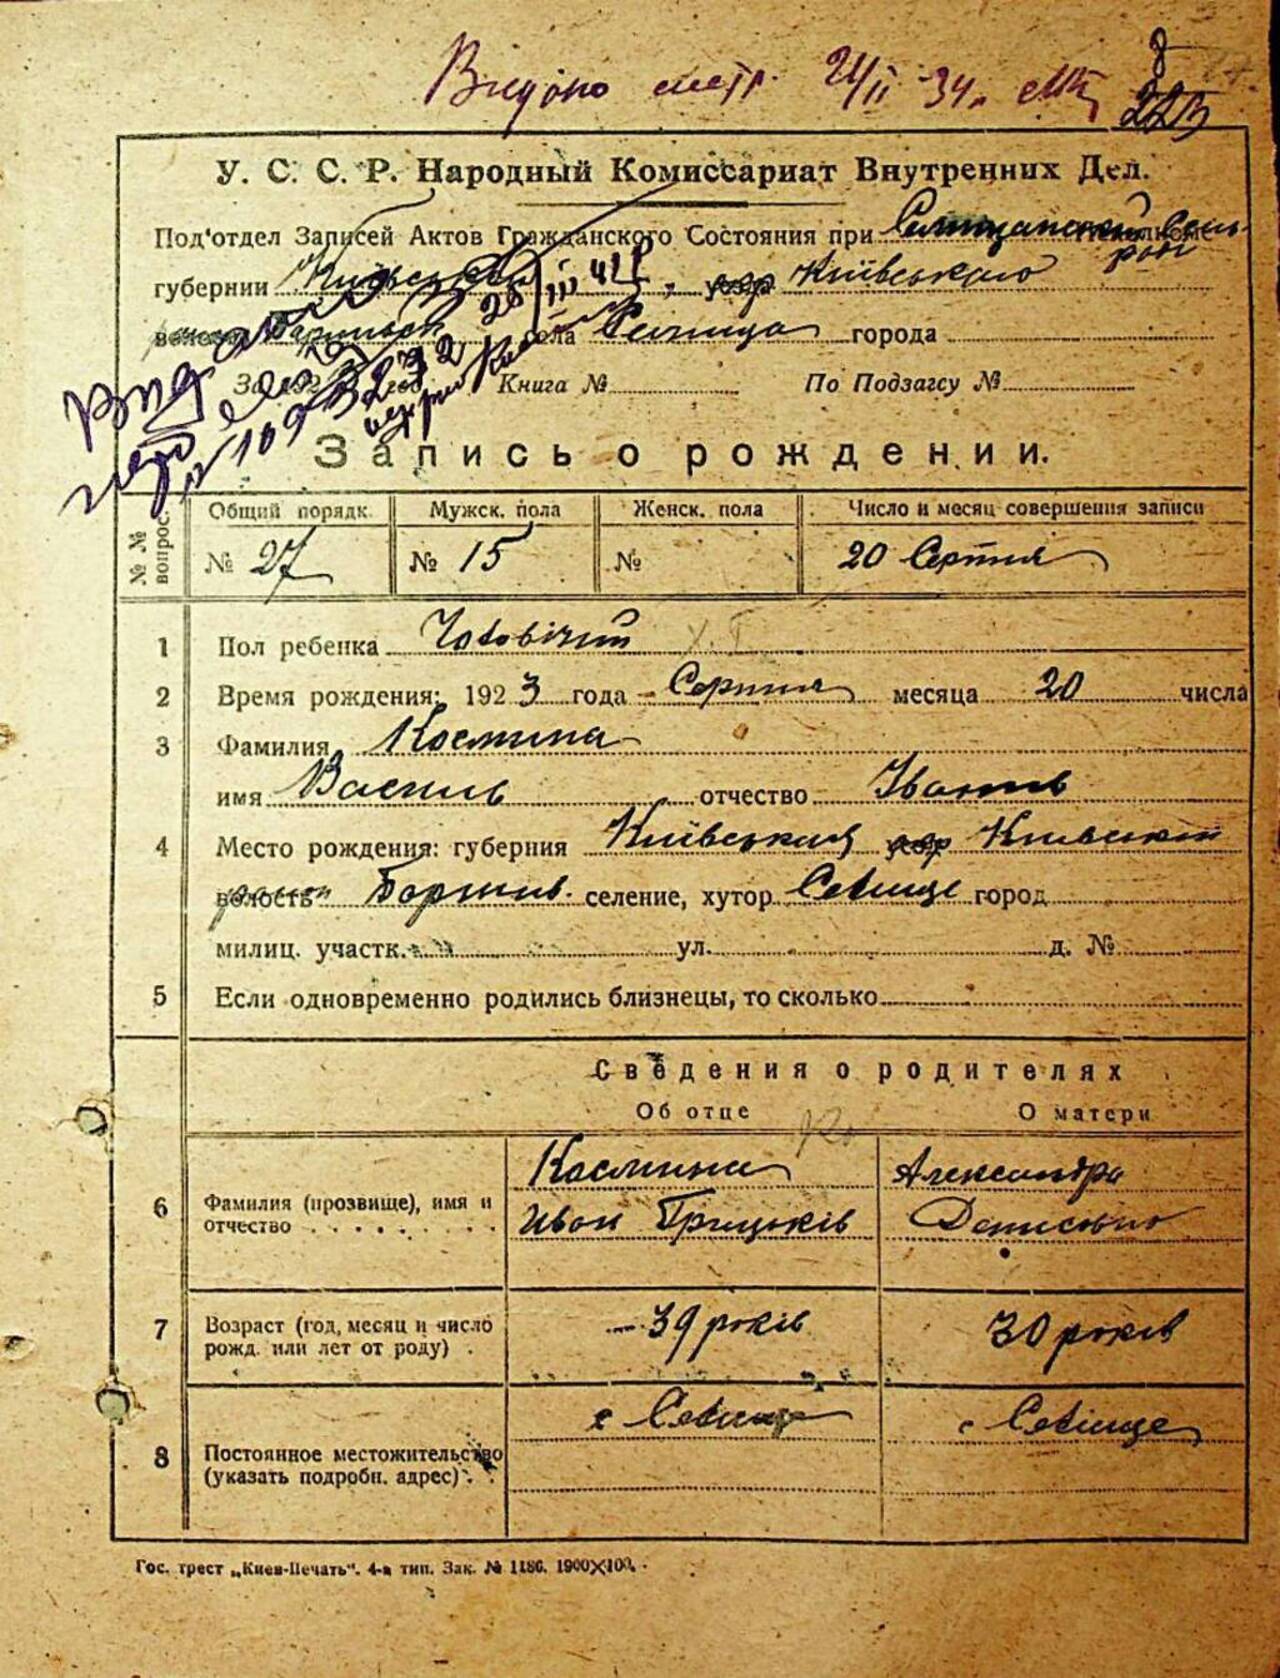 Видано метр. 24/II 34 р.
8
223
У. С. С. Р. Народный Комиссариат Внутренних Дел.
Под'отдел Записей Актов Гражданского Состояния при
губернии Київського
села Селища города
За 192 год Книга № По Подзагсу №
Видано
28/III 41 р
Запись о рождении.
№ № вопрос. Общий порядк. Мужск. пола Женск. пола Число и месяц совершения записи
№ 27 № 15 № 20 Серпня
1 Пол ребенка Чоловічий
2 Время рождения: 1923 года Серпня месяца 20 числа
3 Фамилия Космина
имя Василь отчество Іванів
4 Место рождения: губерния Київська Київський
волость район селение, хутор Селище город
милиц. участк. ул. д. №
5 Если одновременно родились близнецы, то сколько
Сведения о родителях
Об отце О матери
6 Фамилия (прозвище), имя и отчество
Космина
Иван Грицьків
Александра
Денисовна
7 Возраст (год, месяц и число рожд. или лет от роду) 39 років 30 років
8 Постоянное местожительство (указать подробн. адрес) с Селище с Селище
Гос. трест „Киев-Печать". 4-я тип. Зак. № 1186. 1900×100.